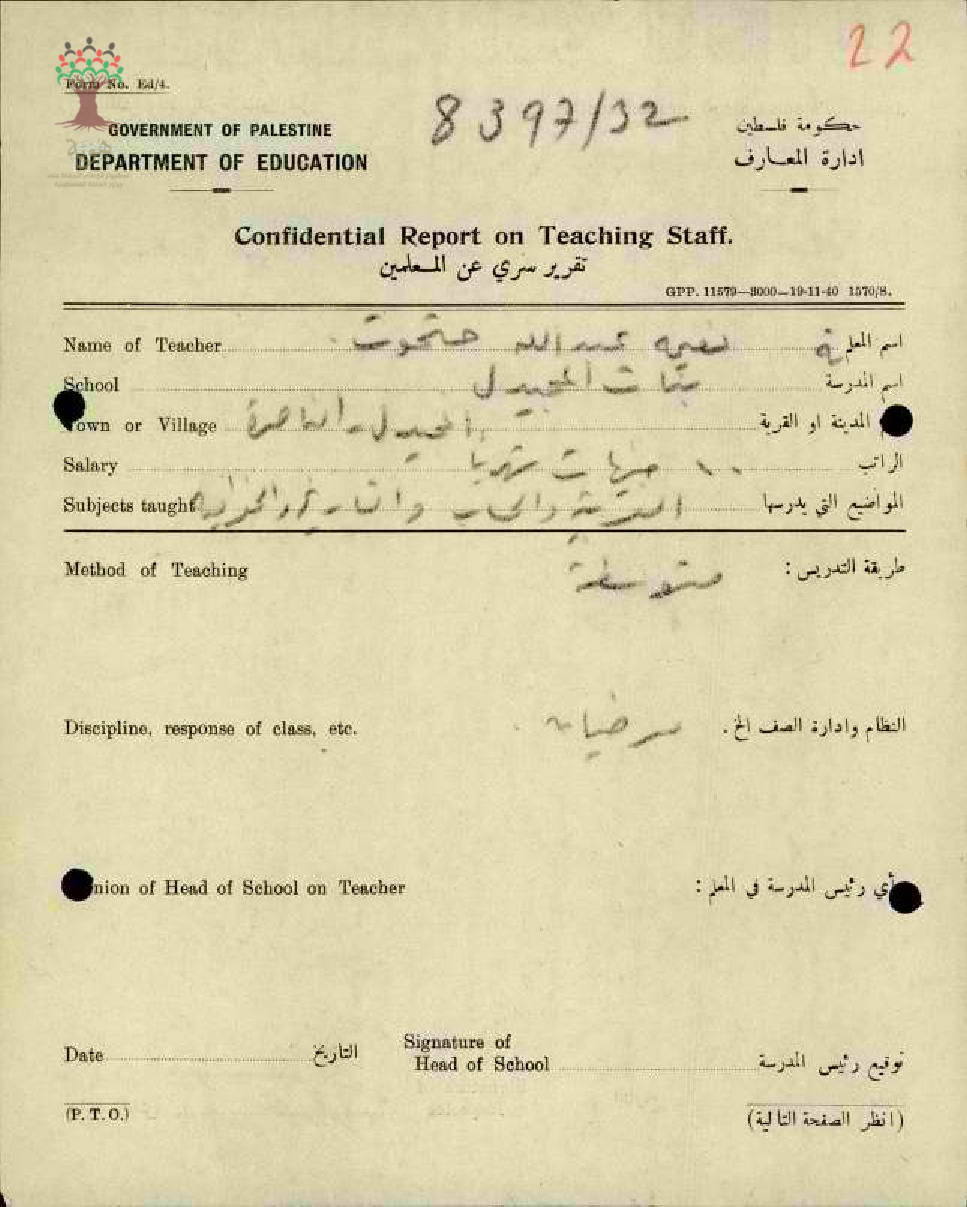 22
Form No. Ed/4.
8397/32
GOVERNMENT OF PALESTINE
حكومة فلسطين
DEPARTMENT OF EDUCATION
ادارة المعارف
Confidential Report on Teaching Staff.
تقرير سري عن المعلمين
GPP. 11579—8000—19-11-40 1570/8.
Name of Teacher عبد الله اسم المعلمة
School بنات المجيدل اسم المدرسة
Town or Village المجيدل - الناصرة المدينة او القرية
Salary ١٠ جنيهات شهريا الراتب
Subjects taught والحساب والتاريخ والجغرافيه المواضيع التي يدرسها
Method of Teaching متوسطة طريقة التدريس :
Discipline, response of class, etc. مرضيان النظام وادارة الصف الخ .
nion of Head of School on Teacher أي رئيس المدرسة في المعلم :
Date التاريخ Signature of
Head of School توقيع رئيس المدرسة
(P. T. O.) (انظر الصفحة التالية)